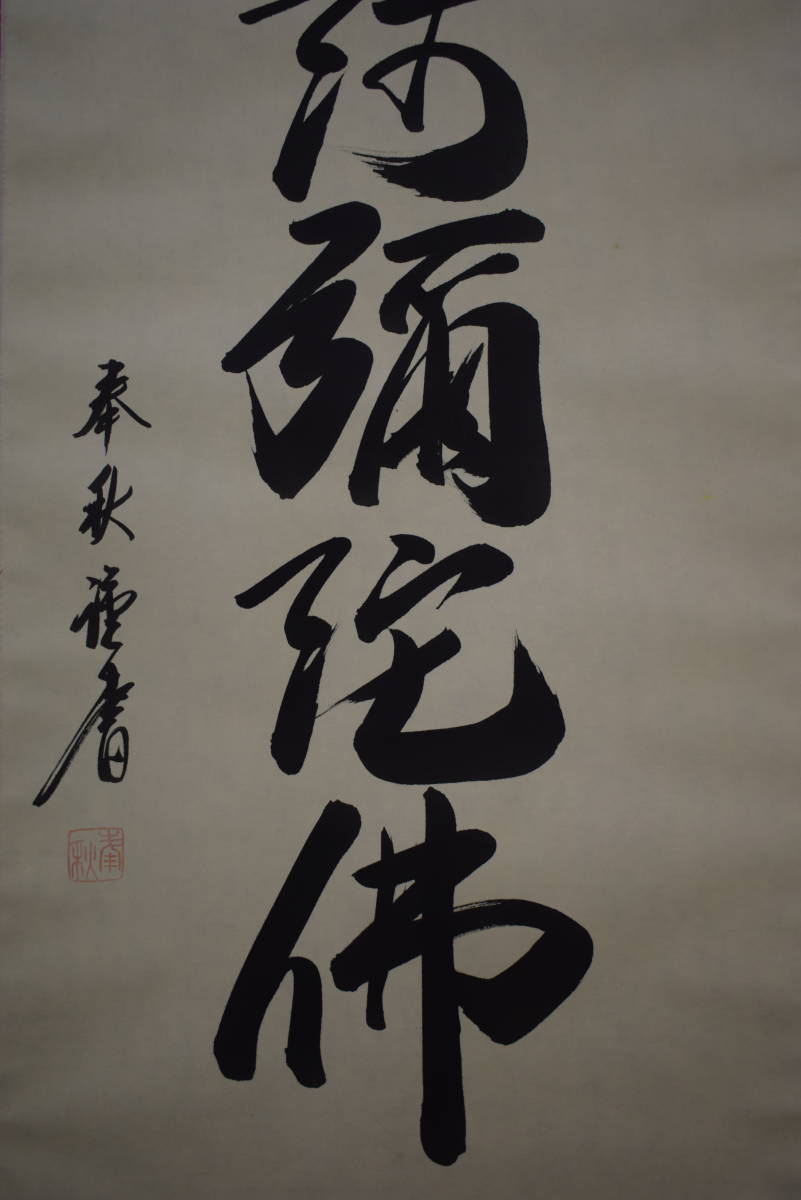 阿彌陀佛
奉秋謹書
奉秋